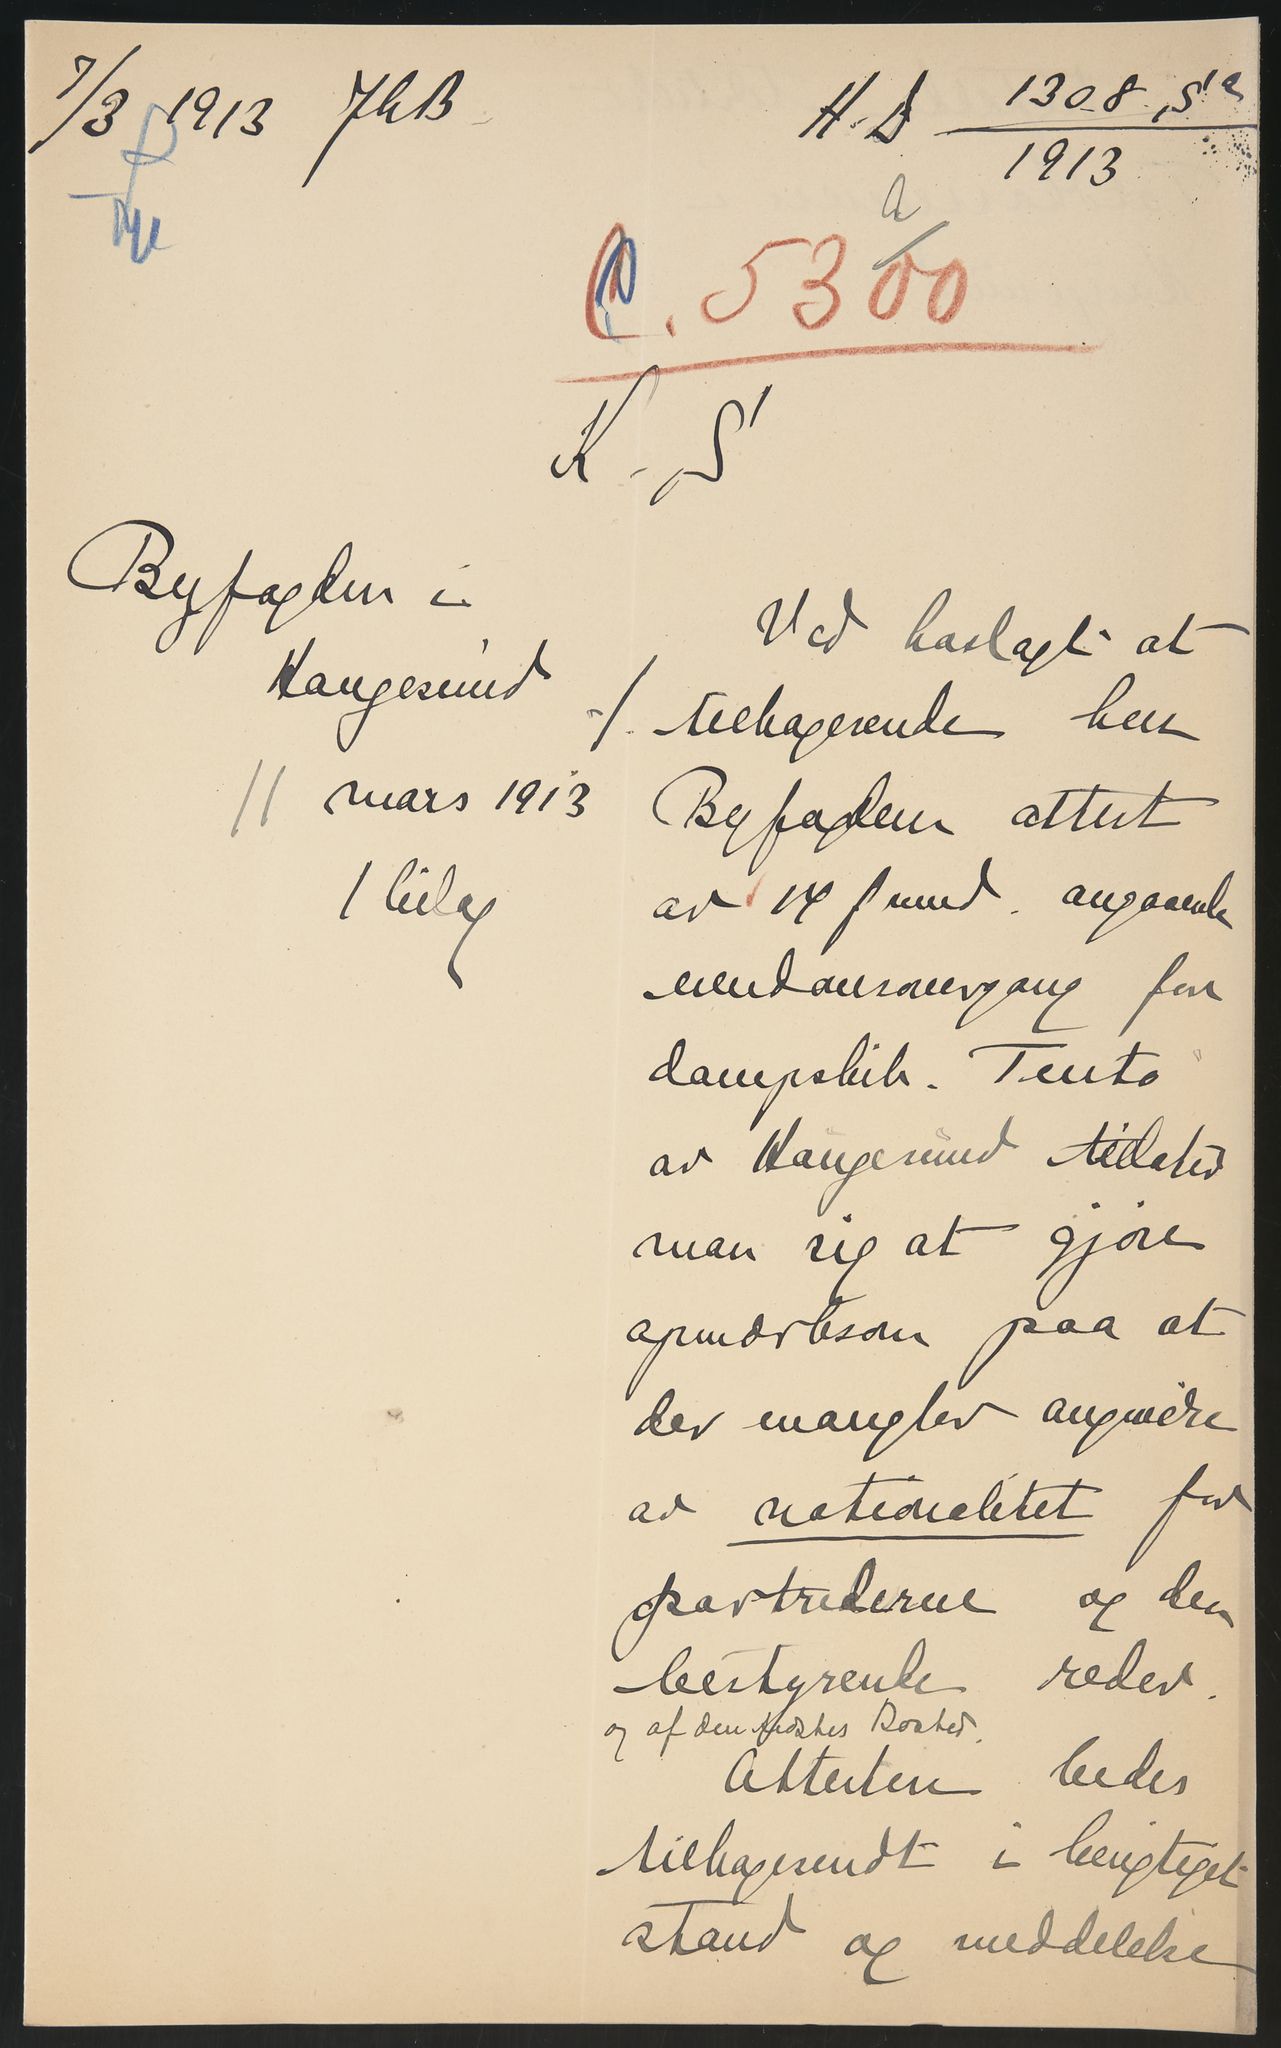 7/3 1913 JhB
H.D 1308 S a
1913
a
C. 5300
K. S
Byfogden i
Haugesund
11 mars 1913
1 bilag
Ved hoslagt at
./. tilbagesende herr
Byfogdens attest
av 14 f. mnd. angaaende
eiendomsovergang for
dampskib. Tento
av Haugesund tillater
man sig at gjøre
opmerksom paa at
der mangler angivelse
av nationalitet for
partrederne og den
bestyrende reder.
og af den sidstes Bosted.
Attesten bedes
tilbagesendt i berigtiget
stand og meddelelse